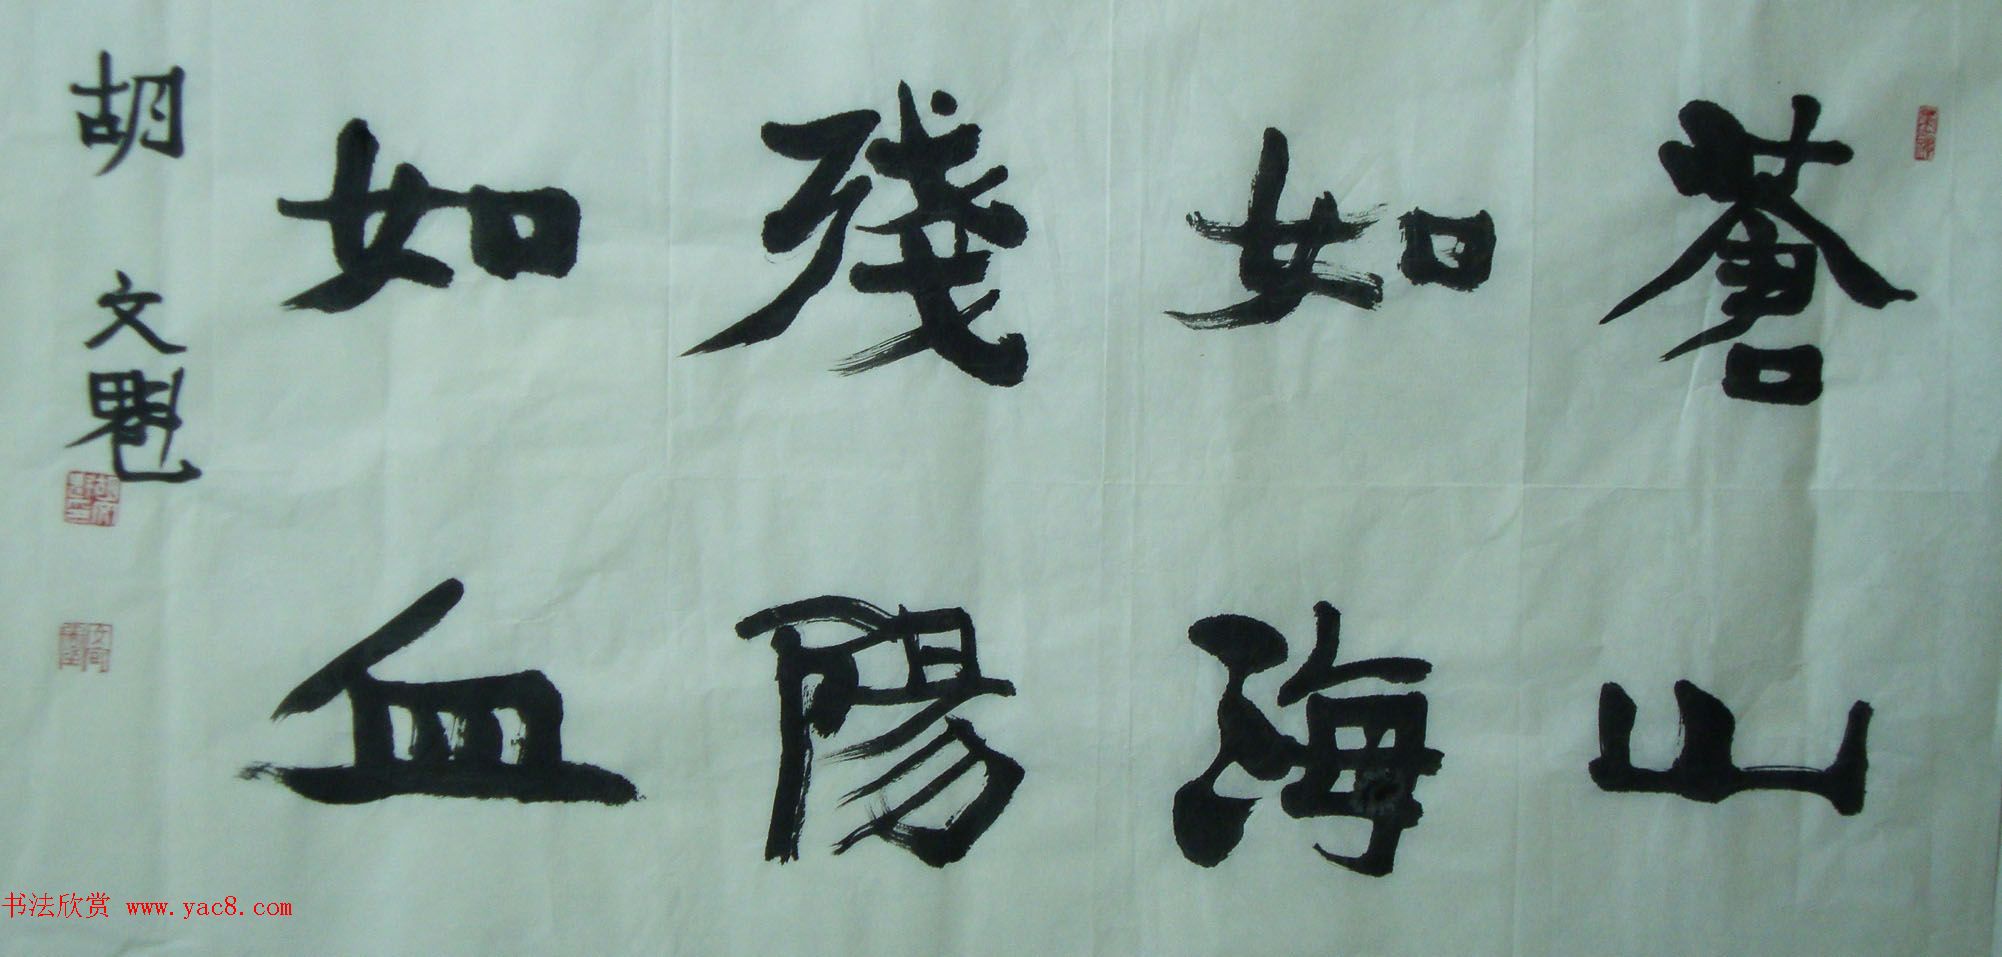 蒼山
如海
殘陽
如血
胡文魁
书法欣赏 www.yac8.com